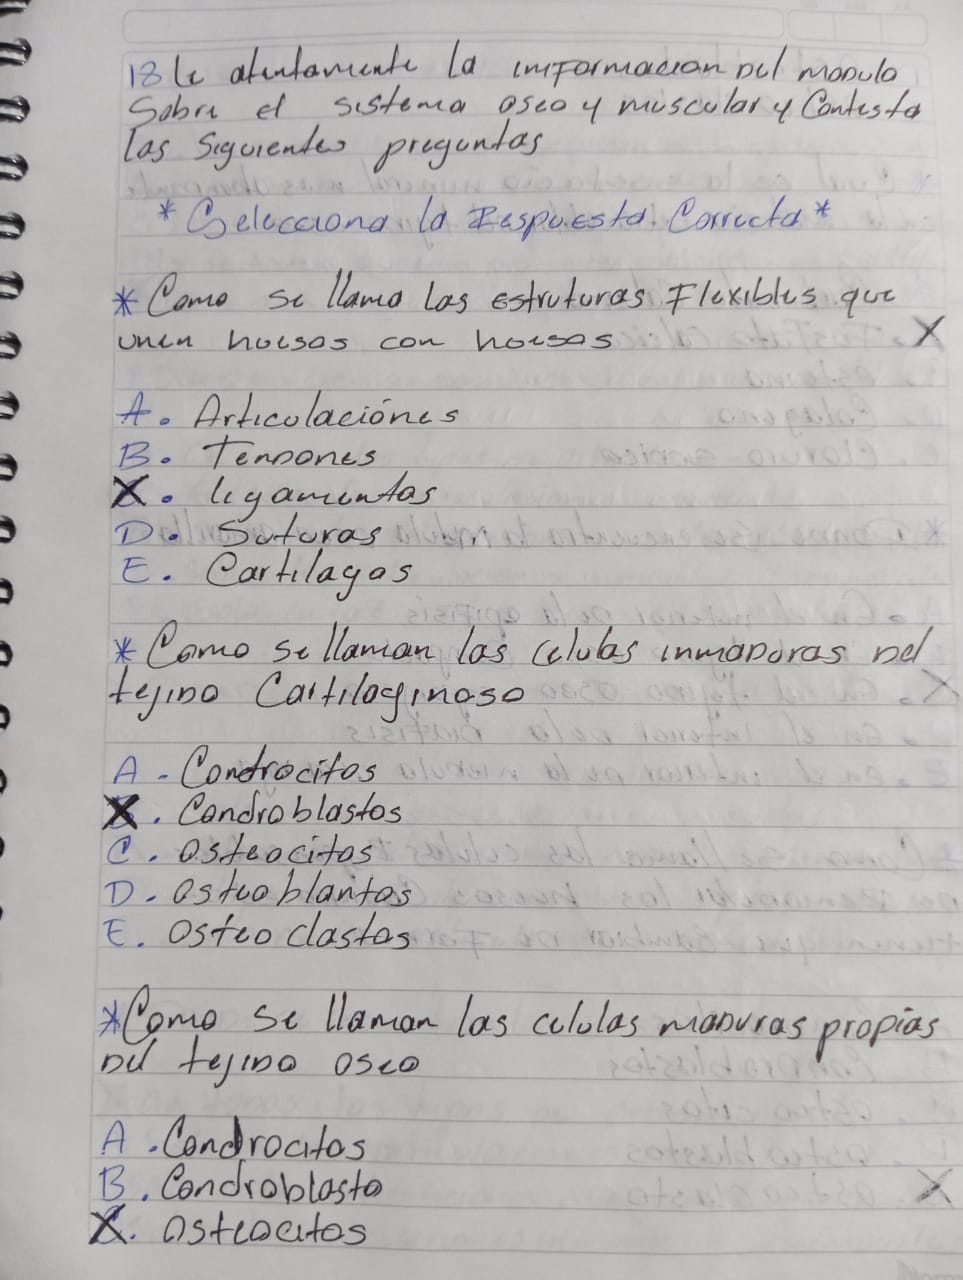 18 le atentamente la imformacion del modulo
Sobre el sistema oseo y muscular y Contesta
las Siguientes preguntas
* Selecciona la Respuesta. Correcta *
* Como se llama las estruturas Flexibles que
unen huesos con huesos
A. Articulaciónes
B. Tendones
X. ligamentos
D. Suturas
E. Cartilagos
* Como se llaman las celulas inmaduras del
tejido Cartilaginoso
A. Condrocitos
X. Condroblastos
C. Osteocitos
D. osteoblantos
E. Osteo clastos
* Como se llaman las celulas maduras propias
del tejido oseo
A. Condrocitos
B. Condroblasto
X. Osteocitos